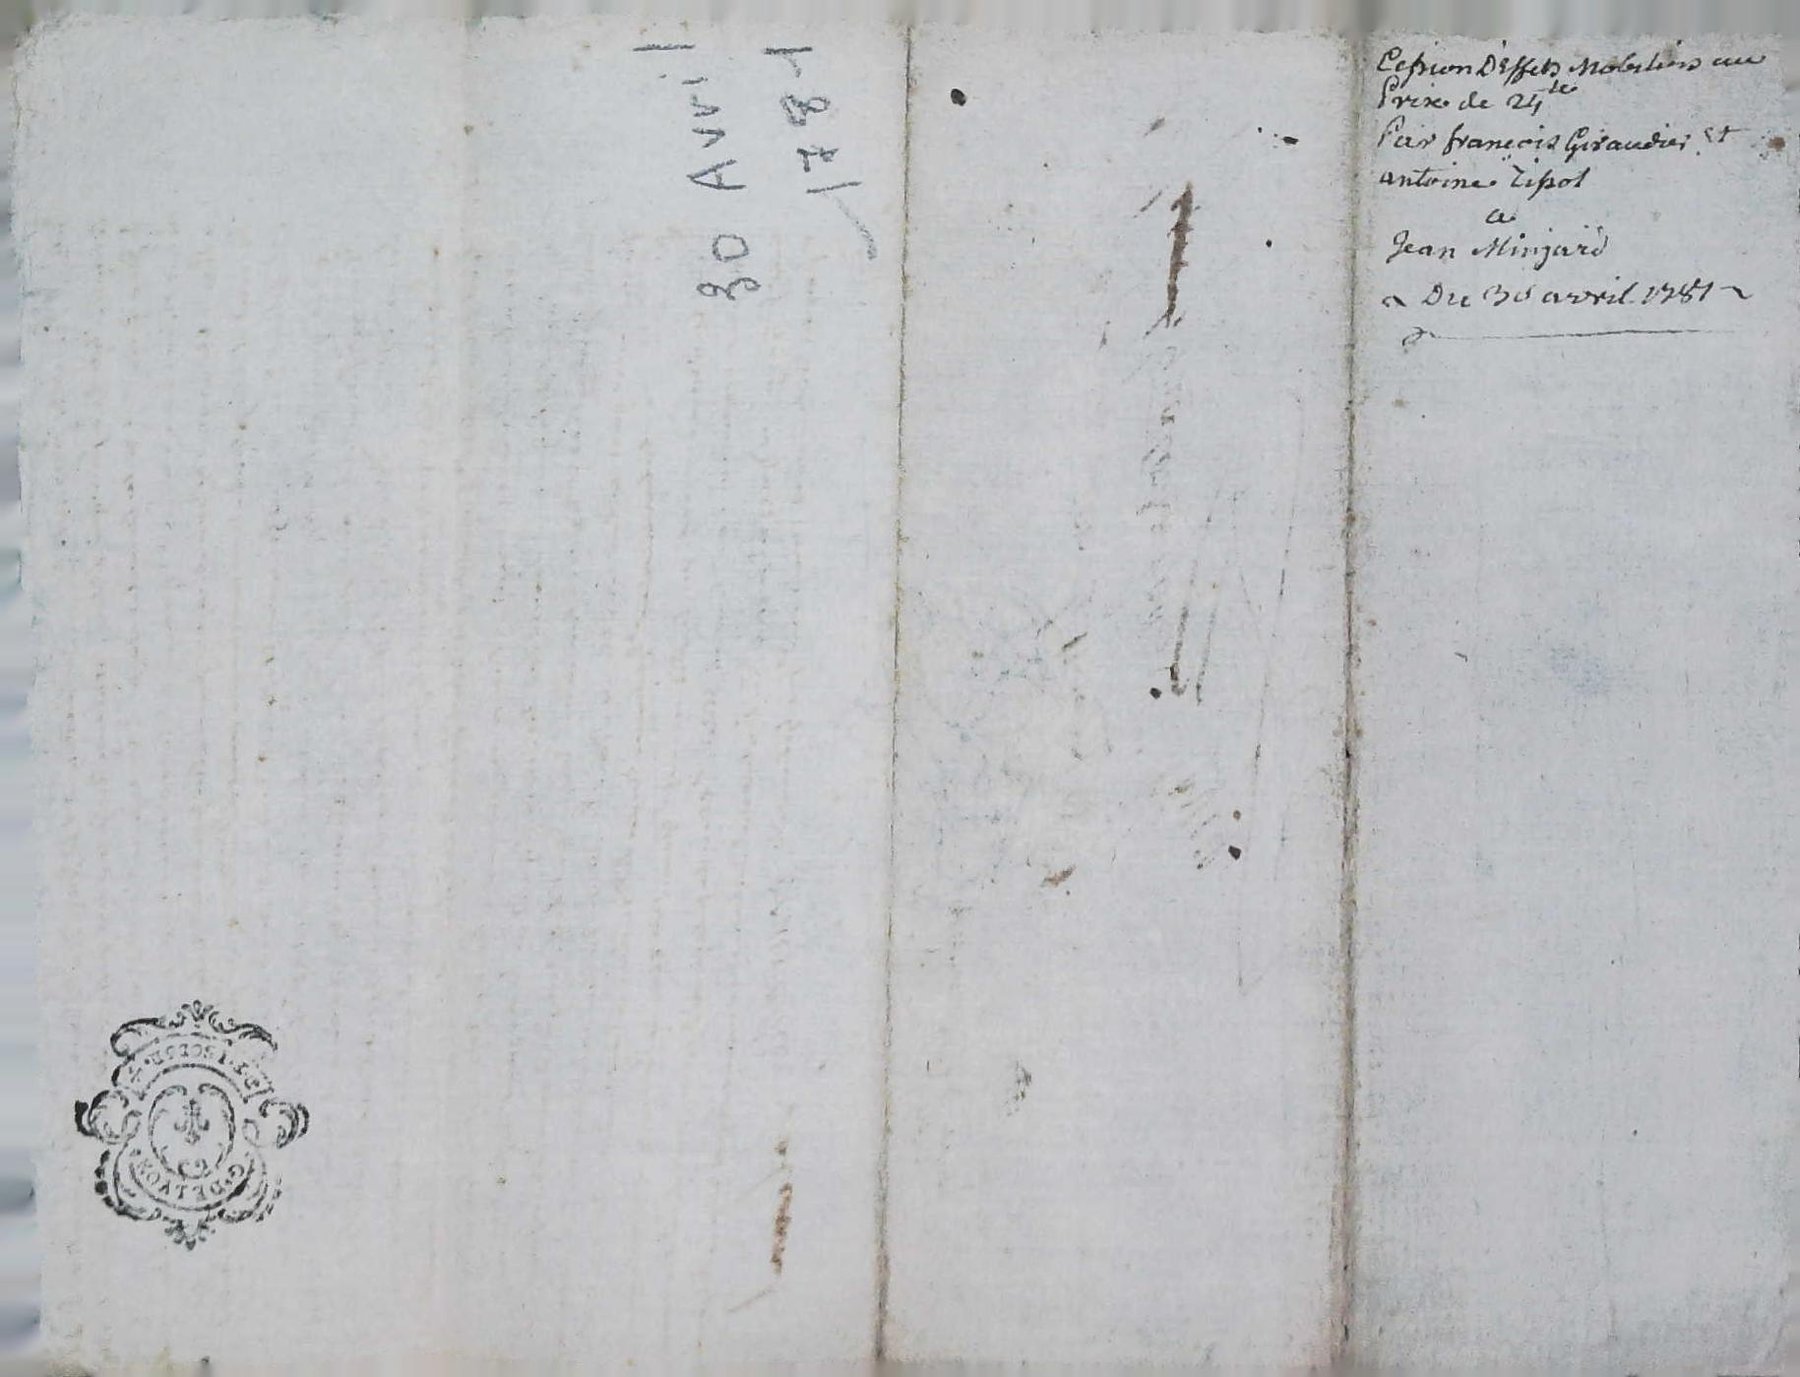 Cession D'Effets Mobiliers au
Prix de 24lt
Par françois Giraudier et
antoine Tissot
a
Jean Minjard
~ Du 30 avril 1781 ~
30 Avril
1781
G. DE LYON